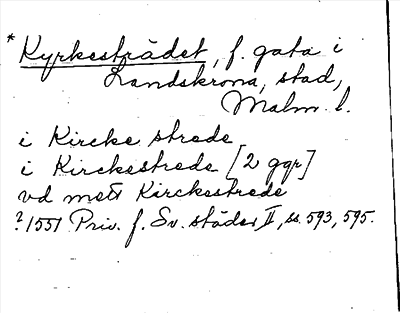 *Kyrkesträdet, f. gata i
Landskrona, stad,
Malm. l.
i Kircke strede
i Kirckestrede [2 ggr]
vd mett Kirckestrede
? 1551 Priv. f. Sv. städer II, ss. 593, 595.